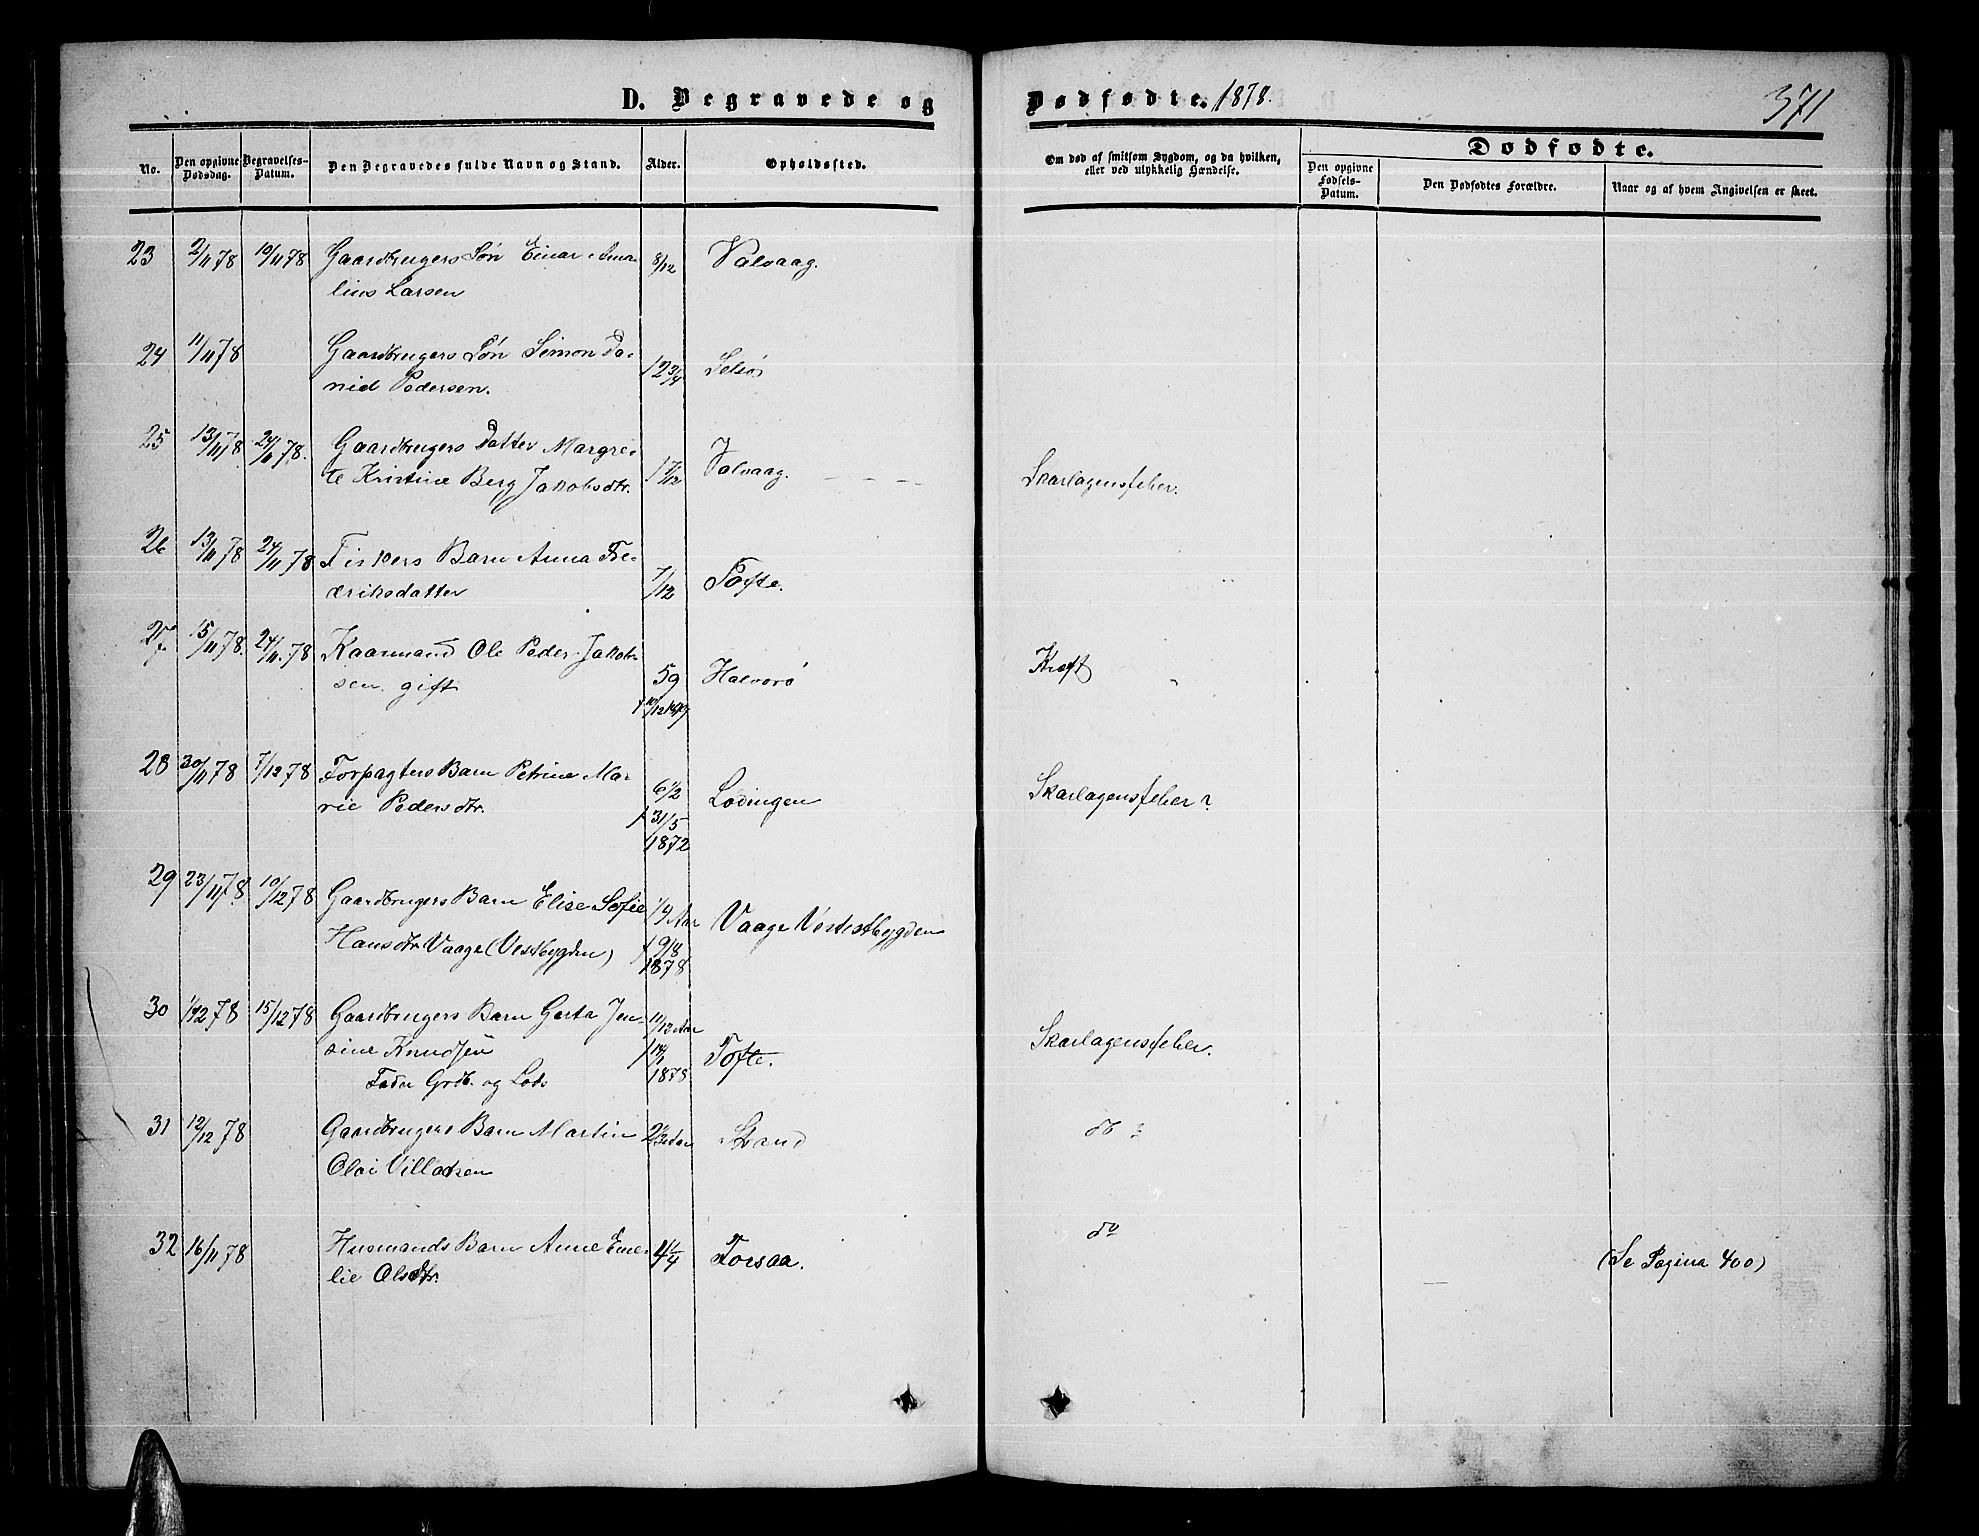 D. Begravede og Dødfødte. 1878. 371
No. Den opgivne Dødsdag. Begravelses-Datum. Den Begravedes fulde Navn og Stand. Alder. Opholdssted. Om død af smitsom Sygdom, og da hvilken, eller ved ulykkelig Hændelse.
Dødfødte.
Den opgivne Fødsels-Datum. Den Dødfødtes Forældre. Naar og af hvem Angivelsen er skeet.
23 2/11 78 10/11 78 Gaardbrugers Søn Einar Ama- 8/12 Valvaag.
lius Larsen
24 11/11 78 Gaardbrugers Søn Simon Da- 12 3/4
niel Pedersen.
25 13/11 78. 24/11 78. Gaardbrugers Datter Margre- 1 7/12 Valvaag.
te Kristine Berg Jakobsdtr. Skarlagensfeber.
26 13/11 78 24/11 78 Fiskers Barn Anna Fre-
deriksdatter 7/12 Tofte.
27. 15/11 78. 24/11. 78 Kaarmand Ole Peder Jakob-
sen. gift 59 Halvorø Kræft
28 30/11 78 7/12 78 Forpagters Barn Petrine Ma-
rie Pedersdtr. 6 1/2 Lødingen Skarlagensfeber?
f 31/5
1872
29 23/11 78. 10/12 78 Gaardbrugers Barn Elise Sofie 1/4 Aar Vaage Vestbygden
Hansdtr Vaage (Vestbygden) f 9/8
1878
30 1/12 78 15/12 78 Gaardbrugers Barn Gerta Jen- 11/12 Aar
sine Knudsen Tofte. Skarlagensfeber.
Fader Grdb. og Lods 1878
31 12/12 78 Gaardbrugers Barn Martin Strand do ?
Olai Villadsen
32 16/11 78 Husmands Barn Anne Eme- 4 1/4 Forsaa. do
lie Olsdtr. (Se Pagina 400)